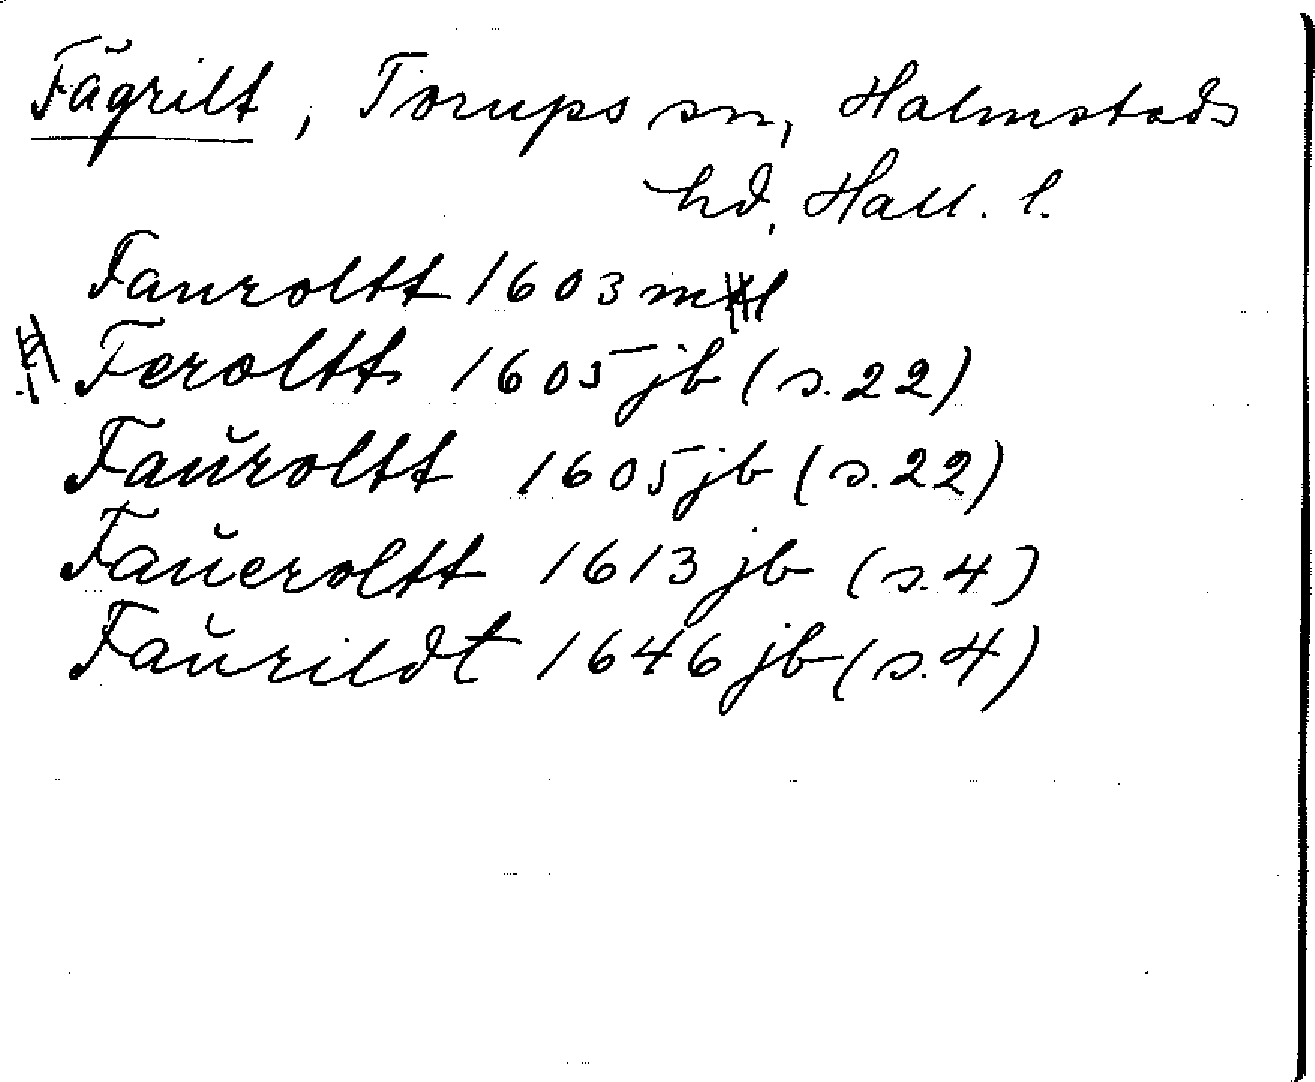 Fågrilt, Torups sn, Halmstads
hd, Hall. l.
Fauroltt 1603 ml
Feroltt 1605 jb (s. 22)
Faŭroltt 1605 jb (s. 22)
Faŭeroltt 1613 jb (s. 4)
Faŭrildt 1646 jb (s. 4)